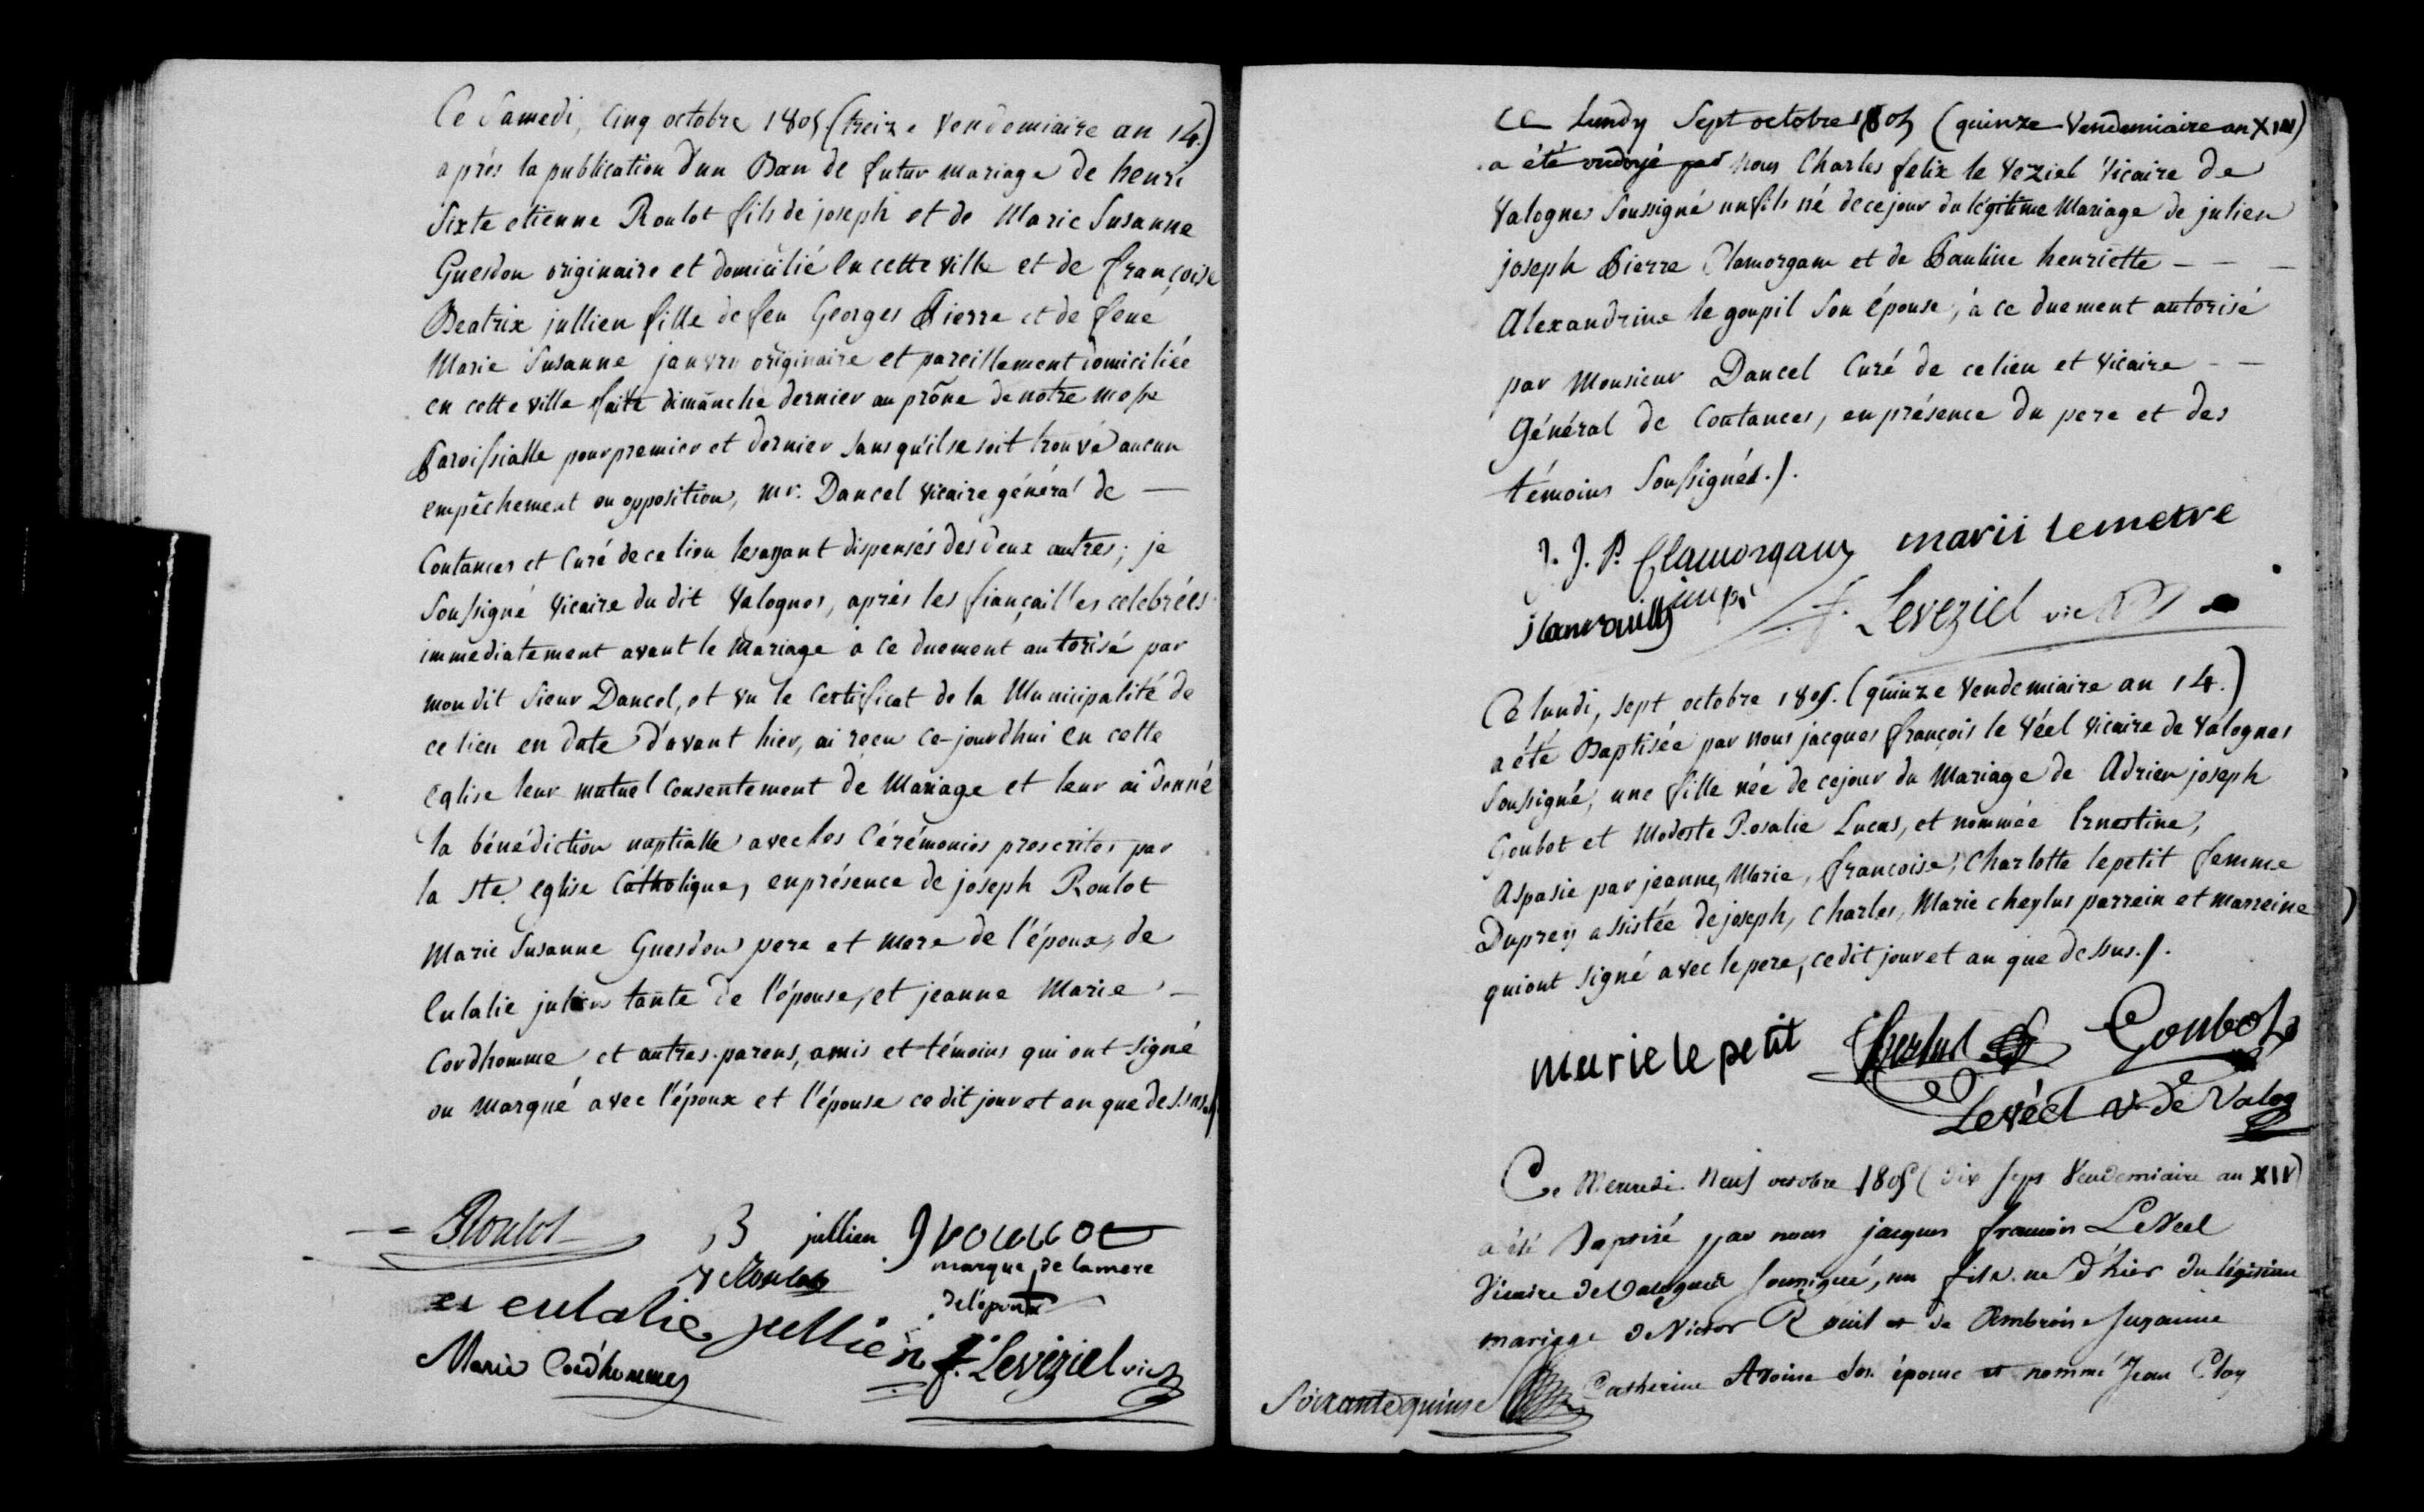 Ce Samedi, Cinq octobre 1805 (treize Vendemiaire an 14.)
après la publication d'un Ban de futur mariage de henri
Sixte etienne Roulot fils de joseph et de Marie Susanne
Guesdon originaire et domicilié en cette ville et de françoise
Beatrix jullien fille de feu Georges Pierre et de feue
Marie Susanne janvry originaire et pareillement domiciliée
en cette ville faite dimanche dernier au prône de notre messe
Paroissialle pour premier et dernier sans qu'il se soit trouvé aucun
empêchement ou opposition, mr. Dancel Vicaire général de —
Coutances et Curé de ce lieu les ayant dispensés des deux autres; je
Soussigné Vicaire du dit Valognes, après les fiançailles celebrées
immediatement avant le Mariage à ce duement autorisé par
mon dit Sieur Dancel, et vu le Certificat de la Municipalité de
ce lieu en date d'avant hier, ai reçu ce-jourdhui en cette
Eglise leur mutuel Consentement de Mariage et leur ai donné
la bénédiction nuptialle avec les Cérémonies prescrites par
la Ste. eglise Catholique, en présence de joseph Roulot
Marie Susanne Guesdon pere et mere de l'époux, de
Eulalie julien tante de l'épouse, et jeanne Marie —
Cordhomme et autres parens, amis et témoins qui ont signé
ou marqué avec l'époux et l'épouse ce dit jour et an que dessus./.
Roulot B jullien
Roulot marque de la mere
de l'époux
eulalie jullien
Marie Cordhomme f. Leveziel vic
Ce Lundy Sept octobre 1805 (quinze Vendemiaire an XIIII)
a été ondoyé par Nous Charles felix le Veziel Vicaire de
Valognes Soussigné un fils né de ce jour du légitime Mariage de julien
joseph Pierre Clamorgam et de Pauline henriette — — —
Alexandrine le goupil Son épouse, à ce duement autorisé
par Monsieur Dancel Curé de ce lieu et Vicaire — —
Général de Coutances, en présence du pere et des
témoins Soussignés./.
J. J. P. Clamorgam marii lemetre
f. Leveziel vic
Ce lundi, sept octobre 1805. (quinze Vendemiaire an 14.)
a été Baptisée par nous jacques françois le Véel Vicaire de Valognes
Soussigné, une fille née de ce jour du Mariage de Adrien joseph
Goubot et Modeste Rosalie Lucas, et nommée Ernestine,
Aspasie par jeanne, Marie, françoise, Charlotte lepetit femme
Duprey assistée de joseph, Charles, Marie cheylus parrein et marreine
qui ont signé avec le pere, ce dit jour et an que dessus./.
marie le petit Cheylus Goubot
Levéel v. de Valog
Ce Mercredi Neuf octobre 1805 (dix sept Vendemiaire an XIV)
a été Baptisé par nous jacques francois LeVéel
Vicaire de Valognes soussigné, un fils né d'hier du légitime
mariage de Victor Rouil et de Ambroise Suzanne
Catherine Avoine son épouse et nommé Jean Eloy
Soixante quinze